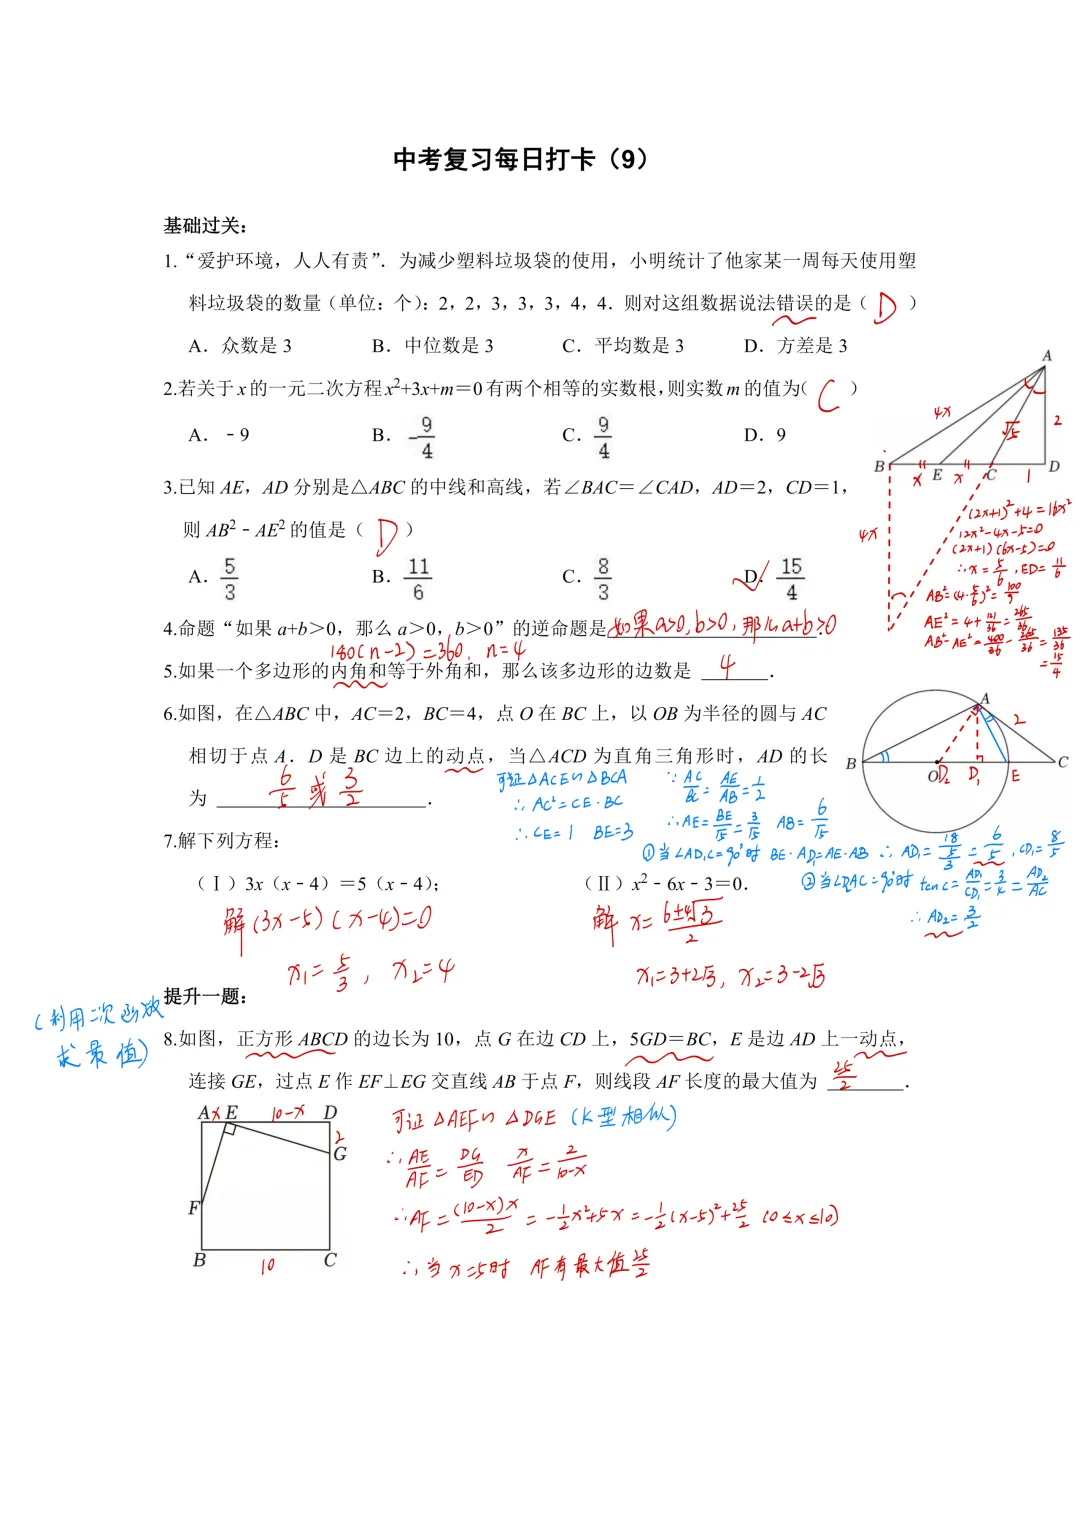 中考复习每日打卡（9）
基础过关：
1.“爱护环境，人人有责”．为减少塑料垃圾袋的使用，小明统计了他家某一周每天使用塑
料垃圾袋的数量（单位：个）：2，2，3，3，3，4，4．则对这组数据说法错误的是（ D ）
A．众数是 3 B．中位数是 3 C．平均数是 3 D．方差是 3
2.若关于 x 的一元二次方程 x²+3x+m＝0 有两个相等的实数根，则实数 m 的值为（ C ）
A．﹣9 B．-9/4 C．9/4 D．9
3.已知 AE，AD 分别是△ABC 的中线和高线，若∠BAC＝∠CAD，AD＝2，CD＝1，
则 AB²﹣AE² 的值是（ D ）
A．5/3 B．11/6 C．8/3 D．15/4
A
4x
√5
2
B x E x C 1 D
4x
(2x+1)²+4=16x²
12x²-4x-5=0
(2x+1)(6x-5)=0
∴x=5/6，ED=11/6
AB²=(4·5/6)²=100/9
AE²=4+121/36=265/36
AB²-AE²=400/36-265/36=135/36
=15/4
4.命题“如果 a+b＞0，那么 a＞0，b＞0”的逆命题是 如果a>0,b>0，那么a+b>0 ．
180(n-2)=360，n=4
5.如果一个多边形的内角和等于外角和，那么该多边形的边数是 4 ．
6.如图，在△ABC 中，AC＝2，BC＝4，点 O 在 BC 上，以 OB 为半径的圆与 AC
相切于点 A．D 是 BC 边上的动点，当△ACD 为直角三角形时，AD 的长
为 6/5 或 3/2 ．
A
2
B O D₂ D₁ E C
可证△ACE∽△BCA
∴AC²=CE·BC
∴CE=1 BE=3
∵AC/BC=AE/AB=1/2
∴AE=BE/√5=3/√5 AB=6/√5
①当∠AD₁C=90°时 BE·AD₁=AE·AB ∴AD₁=18/5/3=6/5，CD₁=8/5
②当∠D₂AC=90°时 tanC=AD₁/CD₁=3/4=AD₂/AC
∴AD₂=3/2
7.解下列方程：
（Ⅰ）3x（x﹣4）＝5（x﹣4）； （Ⅱ）x²﹣6x﹣3＝0．
解 (3x-5)(x-4)=0 解 x=6±4√3/2
x₁=5/3，x₂=4 x₁=3+2√3，x₂=3-2√3
提升一题：
（利用二次函数
求最值）
8.如图，正方形 ABCD 的边长为 10，点 G 在边 CD 上，5GD＝BC，E 是边 AD 上一动点，
连接 GE，过点 E 作 EF⊥EG 交直线 AB 于点 F，则线段 AF 长度的最大值为 25/2 ．
A x E 10-x D
2
G
F
B 10 C
可证△AEF∽△DGE（K型相似）
∴AE/AF=DG/ED x/AF=2/10-x
∴AF=(10-x)x/2=-1/2x²+5x=-1/2(x-5)²+25/2 (0≤x≤10)
∴当x=5时 AF有最大值25/2